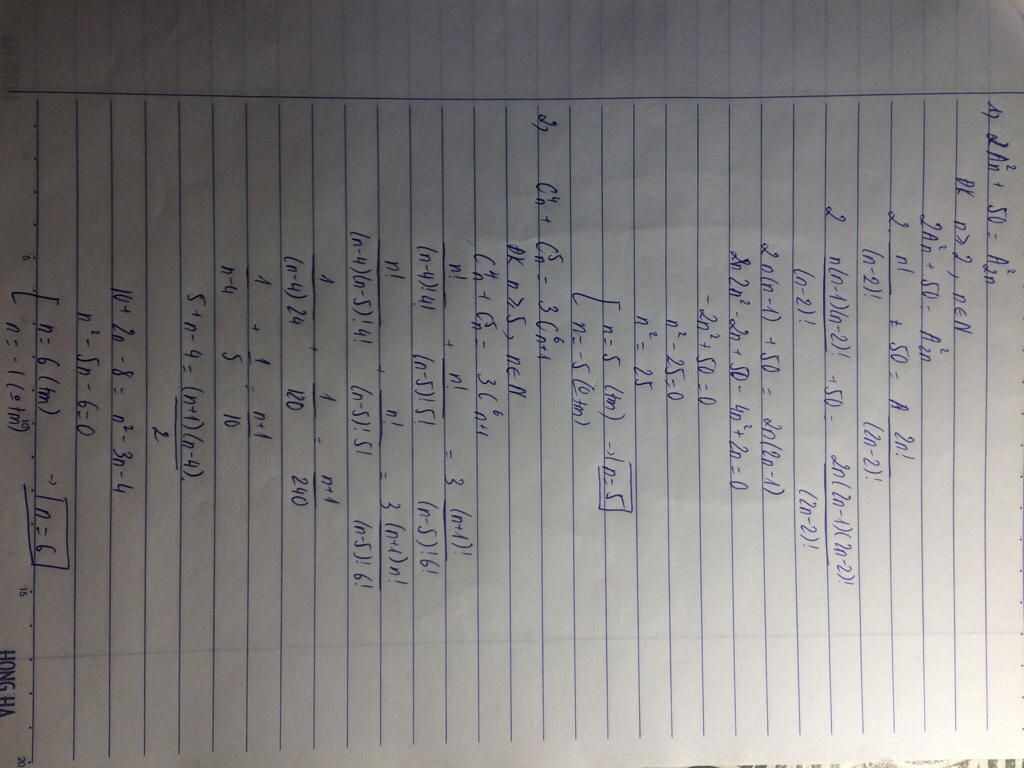 1, 2A²n + 50 = A²2n
ĐK n ≥ 2, n ∈ N
2A²n + 50 = A²2n
2 n!/(n-2)! + 50 = A 2n!/(2n-2)!
2 n(n-1)(n-2)!/(n-2)! + 50 = 2n(2n-1)(2n-2)!/(2n-2)!
2n(n-1) + 50 = 2n(2n-1)
2n² - 2n + 50 - 4n² + 2n = 0
-2n² + 50 = 0
n² - 25 = 0
n² = 25
[ n = 5 (tm) → n = 5
n = -5 (
2, C⁴n + C⁵n = 3C⁶n+1
ĐK n ≥ 5, n ∈ N
C⁴n + C⁵n = 3C⁶n+1
n!/(n-4)!4! + n!/(n-5)!5! = 3 (n+1)!/(n-5)!6!
n!/(n-4)(n-5)!4! + n!/(n-5)!5! = 3 (n+1)n!/(n-5)!6!
1/(n-4)24 + 1/120 = n+1/240
1/n-4 + 1/5 = n+1/10
5 + n - 4 = (n+1)(n-4)/2
10 + 2n - 8 = n² - 3n - 4
n² - 5n - 6 = 0
[ n = 6 (tm) → n = 6
n = -1 (
5 10 15 20
HONG HA